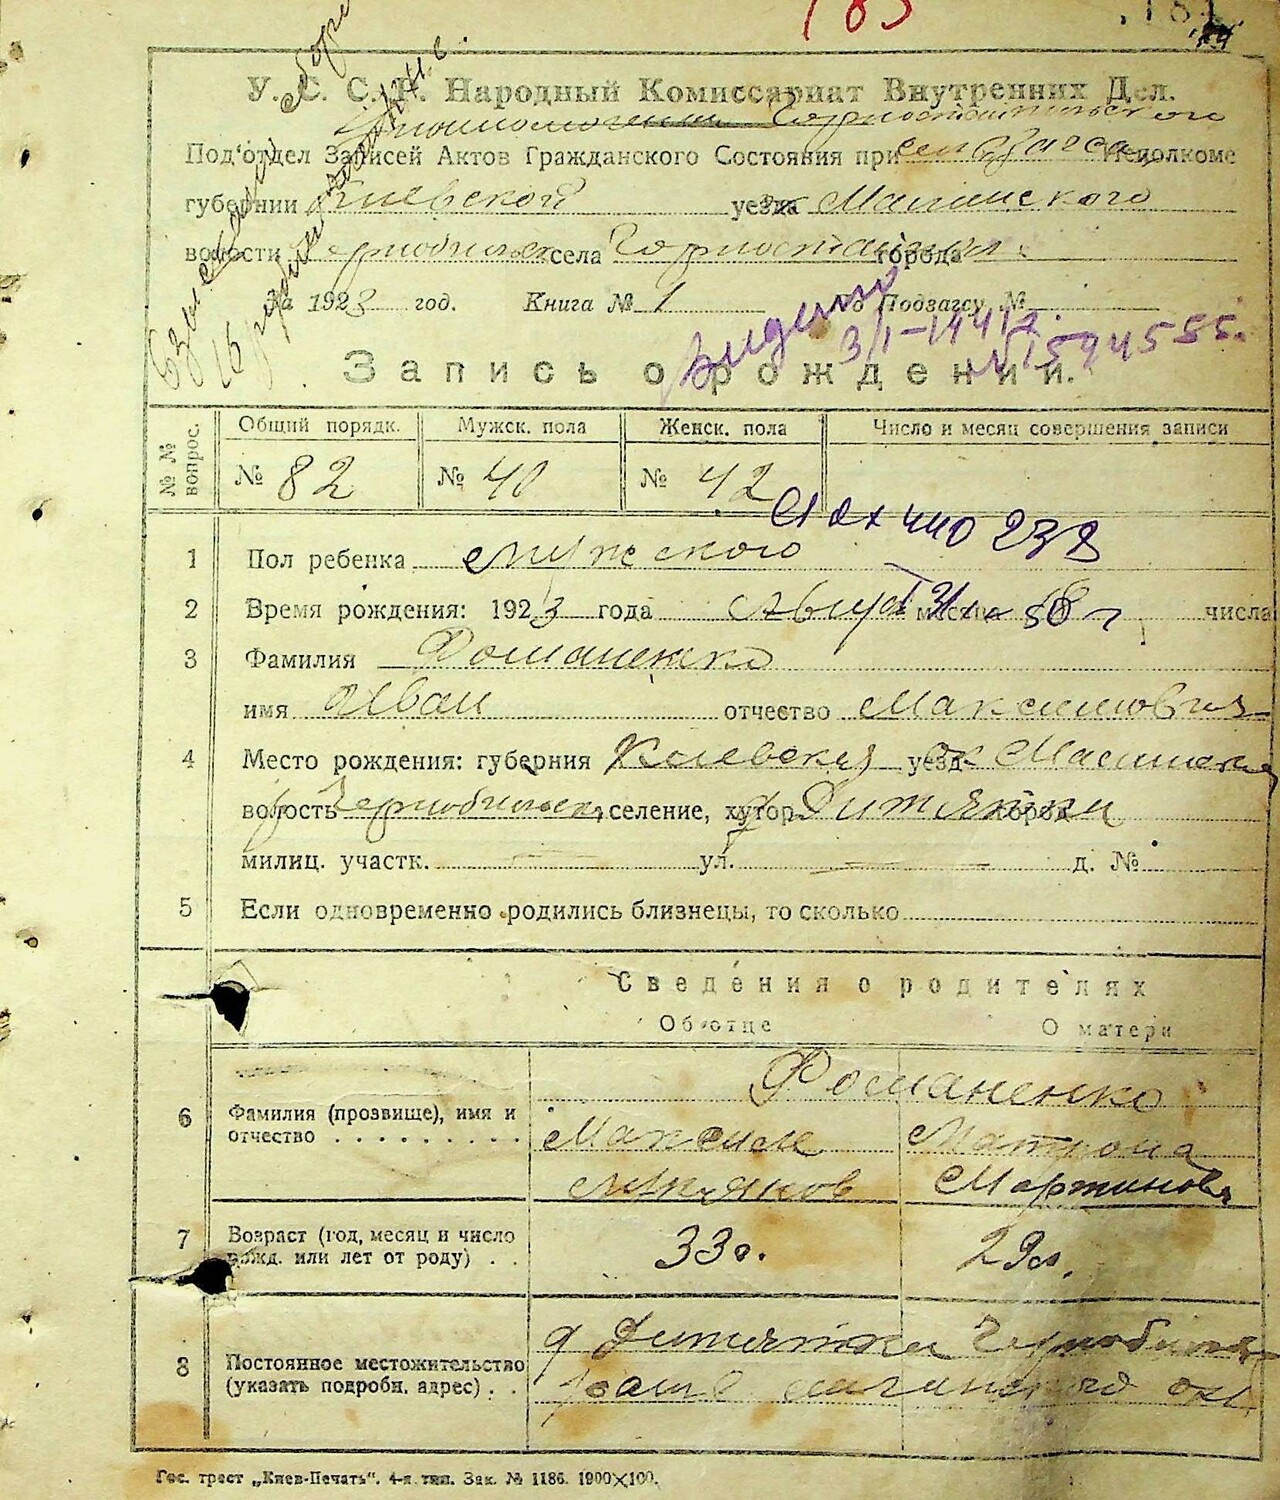 183
184
У. С. С. Р. Народный Комиссариат Внутренних Дел.
Под'отдел Записей Актов Гражданского Состояния при Исполкоме
губернии Киевской уезда ок Малинского
волости села Горностайпол города
За 1923 год. Книга № 1 По Подзагсу №
Видано 3/I-1941 г. № 1594555.
Запись о рождении.
№ № вопрос. Общий порядк. Мужск. пола Женск. пола Число и месяц совершения записи
№ 82 № 40 № 42
440 238
1 Пол ребенка мужского
2 Время рождения: 1923 года Август месяца числа
3 Фамилия Романенко
имя Иван отчество Максимович
4 Место рождения: губерния Киевская уезд ок Малинский
волость селение, хутор, д Дитятки город
милиц. участк. — ул. — д. №
5 Если одновременно родились близнецы, то сколько
Сведения о родителях
Об отце О матери
Романенко
6 Фамилия (прозвище), имя и отчество . . . . . . . . . . Максим Матрона
Мартинова
7 Возраст (год, месяц и число рожд. или лет от роду) . . 33 г. 29 л.
8 Постоянное местожительство (указать подробн. адрес) . . д Дитятки
Гос. трест „Киев-Печать". 4-я тип. Зак. № 1186. 1900×100.